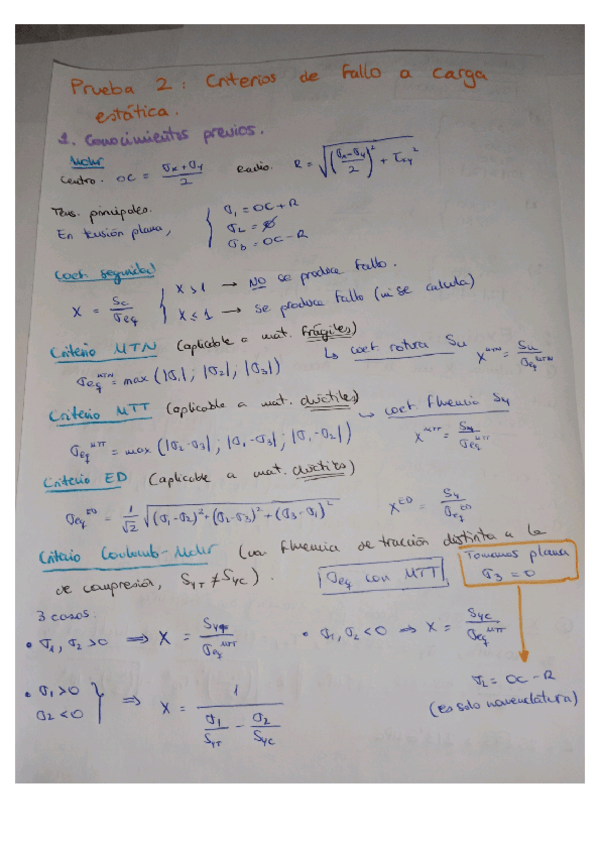 Prueba 2: Criterios de Fallo a carga
estática.
1. Conocimientos previos.
Mohr
Centro. OC = (σx+σy)/2 Radio. R = √(((σx-σy)/2)² + τxy²)
Tens. principales.
En tensión plana, { σ1 = OC + R
σ2 = ∅
σ3 = OC - R
Coef. seguridad
X = Sc/σeq { X > 1 → NO se produce fallo.
X ≤ 1 → se produce fallo (ni se calcula)
Criterio MTN (aplicable a mat. frágiles)
↳ coef. rotura Su X^MTN = Su/σeq^MTN
σeq^MTN = max (|σ1|; |σ2|; |σ3|)
Criterio MTT (aplicable a mat. dúctiles)
↳ coef. fluencia Sy
σeq^MTT = max (|σ2-σ3|; |σ1-σ3|; |σ1-σ2|) X^MTT = Sy/σeq^MTT
Criterio ED (aplicable a mat. dúctiles)
σeq^ED = 1/√2 √((σ1-σ2)²+(σ2-σ3)²+(σ3-σ1)²) X^ED = Sy/σeq^ED
Criterio Coulomb-Mohr (fluencia de tracción distinta a la
de compresión, SyT ≠ SyC). σeq con MTT
Tomamos plana
σ3 = 0
3 casos.
• σ1, σ2 > 0 ⇒ X = SyT/σeq^MTT • σ1, σ2 < 0 ⇒ X = SyC/σeq^MTT
• σ1 > 0
σ2 < 0 } ⇒ X = 1/(σ1/SyT - σ2/SyC)
σ2 = OC - R
(es solo nomenclatura)